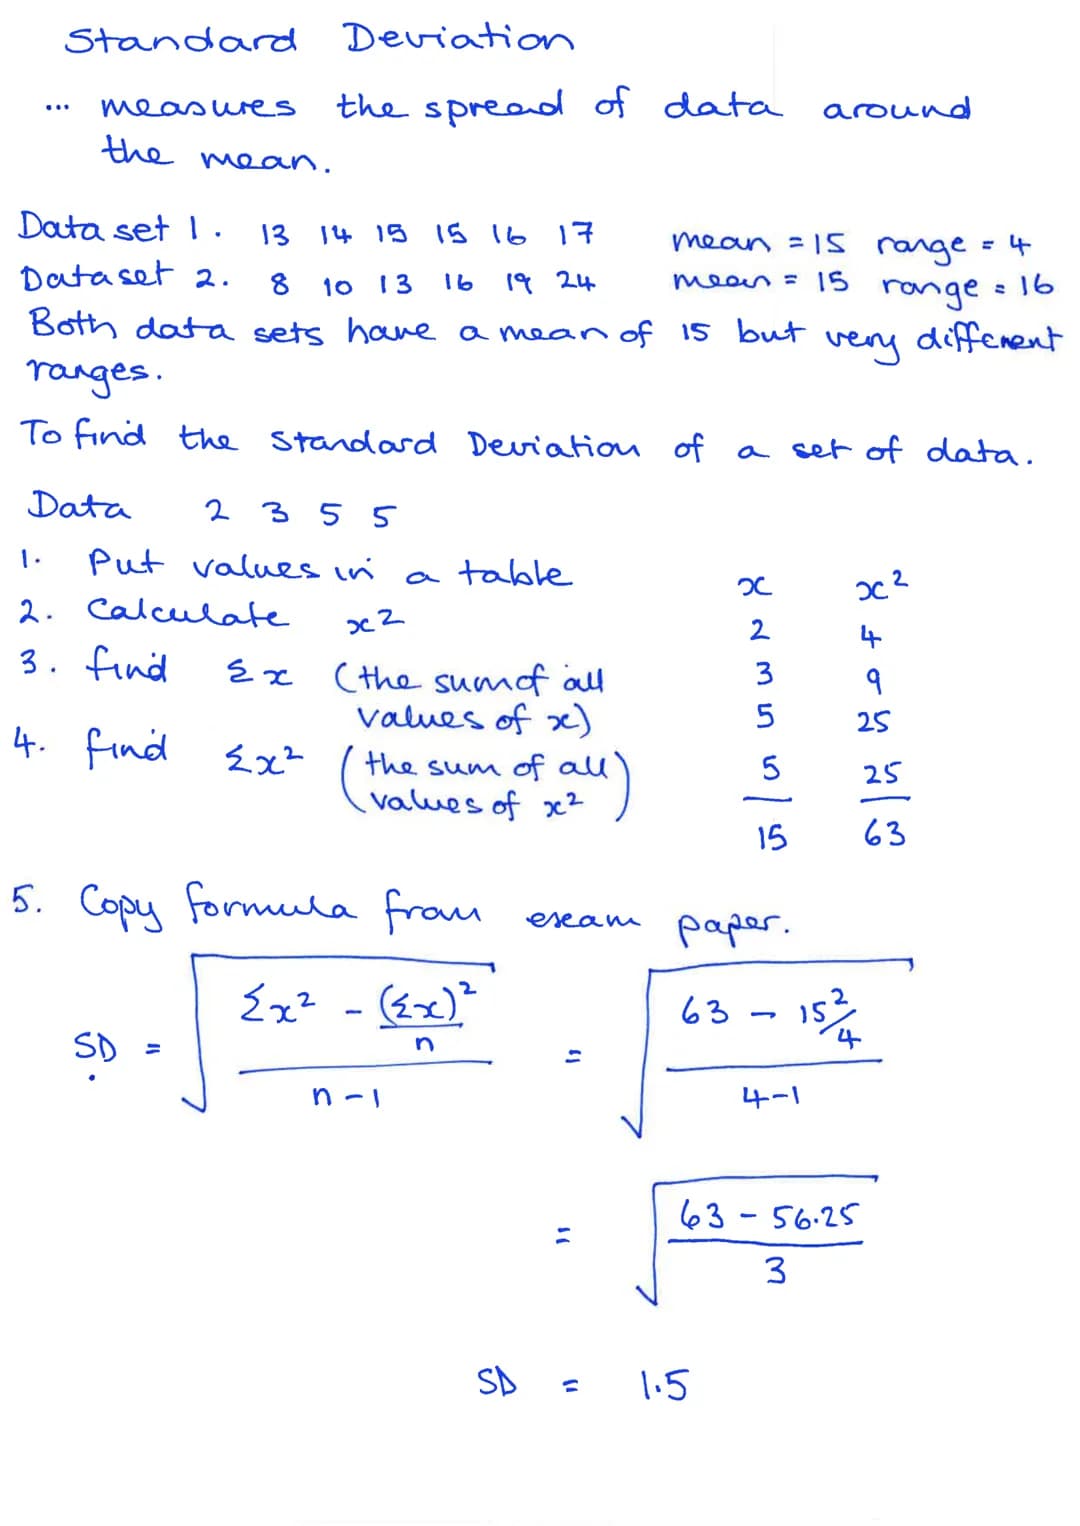 Standard Deviation
... measures the spread of data around
the mean.
Data set 1. 13 14 15 15 16 17 mean = 15 range = 4
Data set 2. 8 10 13 16 19 24 mean = 15 range = 16
Both data sets have a mean of 15 but very different
ranges.
To find the Standard Deviation of a set of data.
Data 2 3 5 5
1. Put values in a table
2. Calculate x²
3. find Σx (the sum of all
values of x)
4. find Σx² (the sum of all
values of x²)
x x²
2 4
3 9
5 25
5 25
15 63
5. Copy formula from exam paper.
SD = √((Σx² - (Σx)²/n)/(n-1)) = √((63 - 15²/4)/(4-1))
= √((63 - 56.25)/3)
SD = 1.5